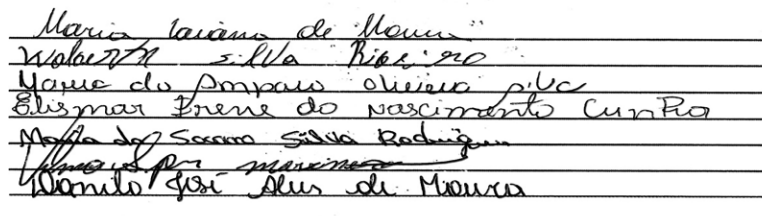 Maria de Moura
Silva Ribeiro
Maria do Amparo Oliveira Silva
Elismar Irene do Nascimento Cunha
Maria do Socorro Silva Rodrigues
Danilo José Alves de Moura